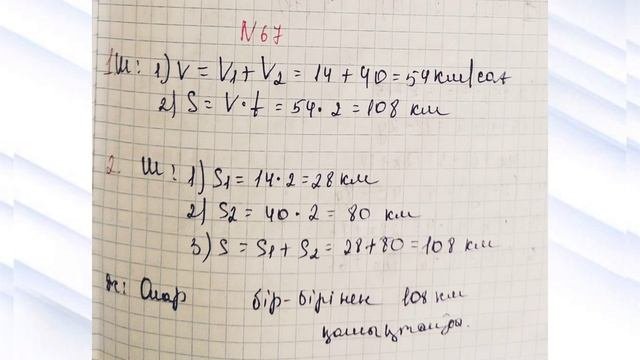 N67
1 Ш: 1) V = V1 + V2 = 14 + 40 = 54 км/сағ
2) S = V · t = 54 · 2 = 108 км
2. Ш: 1) S1 = 14 · 2 = 28 км
2) S2 = 40 · 2 = 80 км
3) S = S1 + S2 = 28 + 80 = 108 км
Ж: Олар бір-бірінен 108 км
қашықтайды.